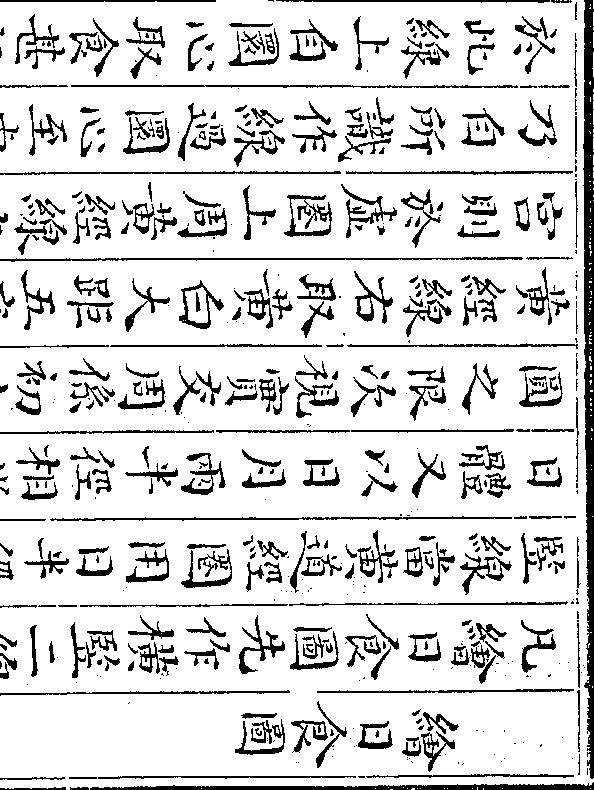 繪日食圖
凡繪日食圖先作橫豎二線
豎線當黄道經圈用日半徑
日體又以日月兩半徑相
圓之限次視實交周係初
黄經線右取黄白大距五
宮則於虛圈上周黄經線
乃自所識作線過圜心至
於此線上自圜心取食甚